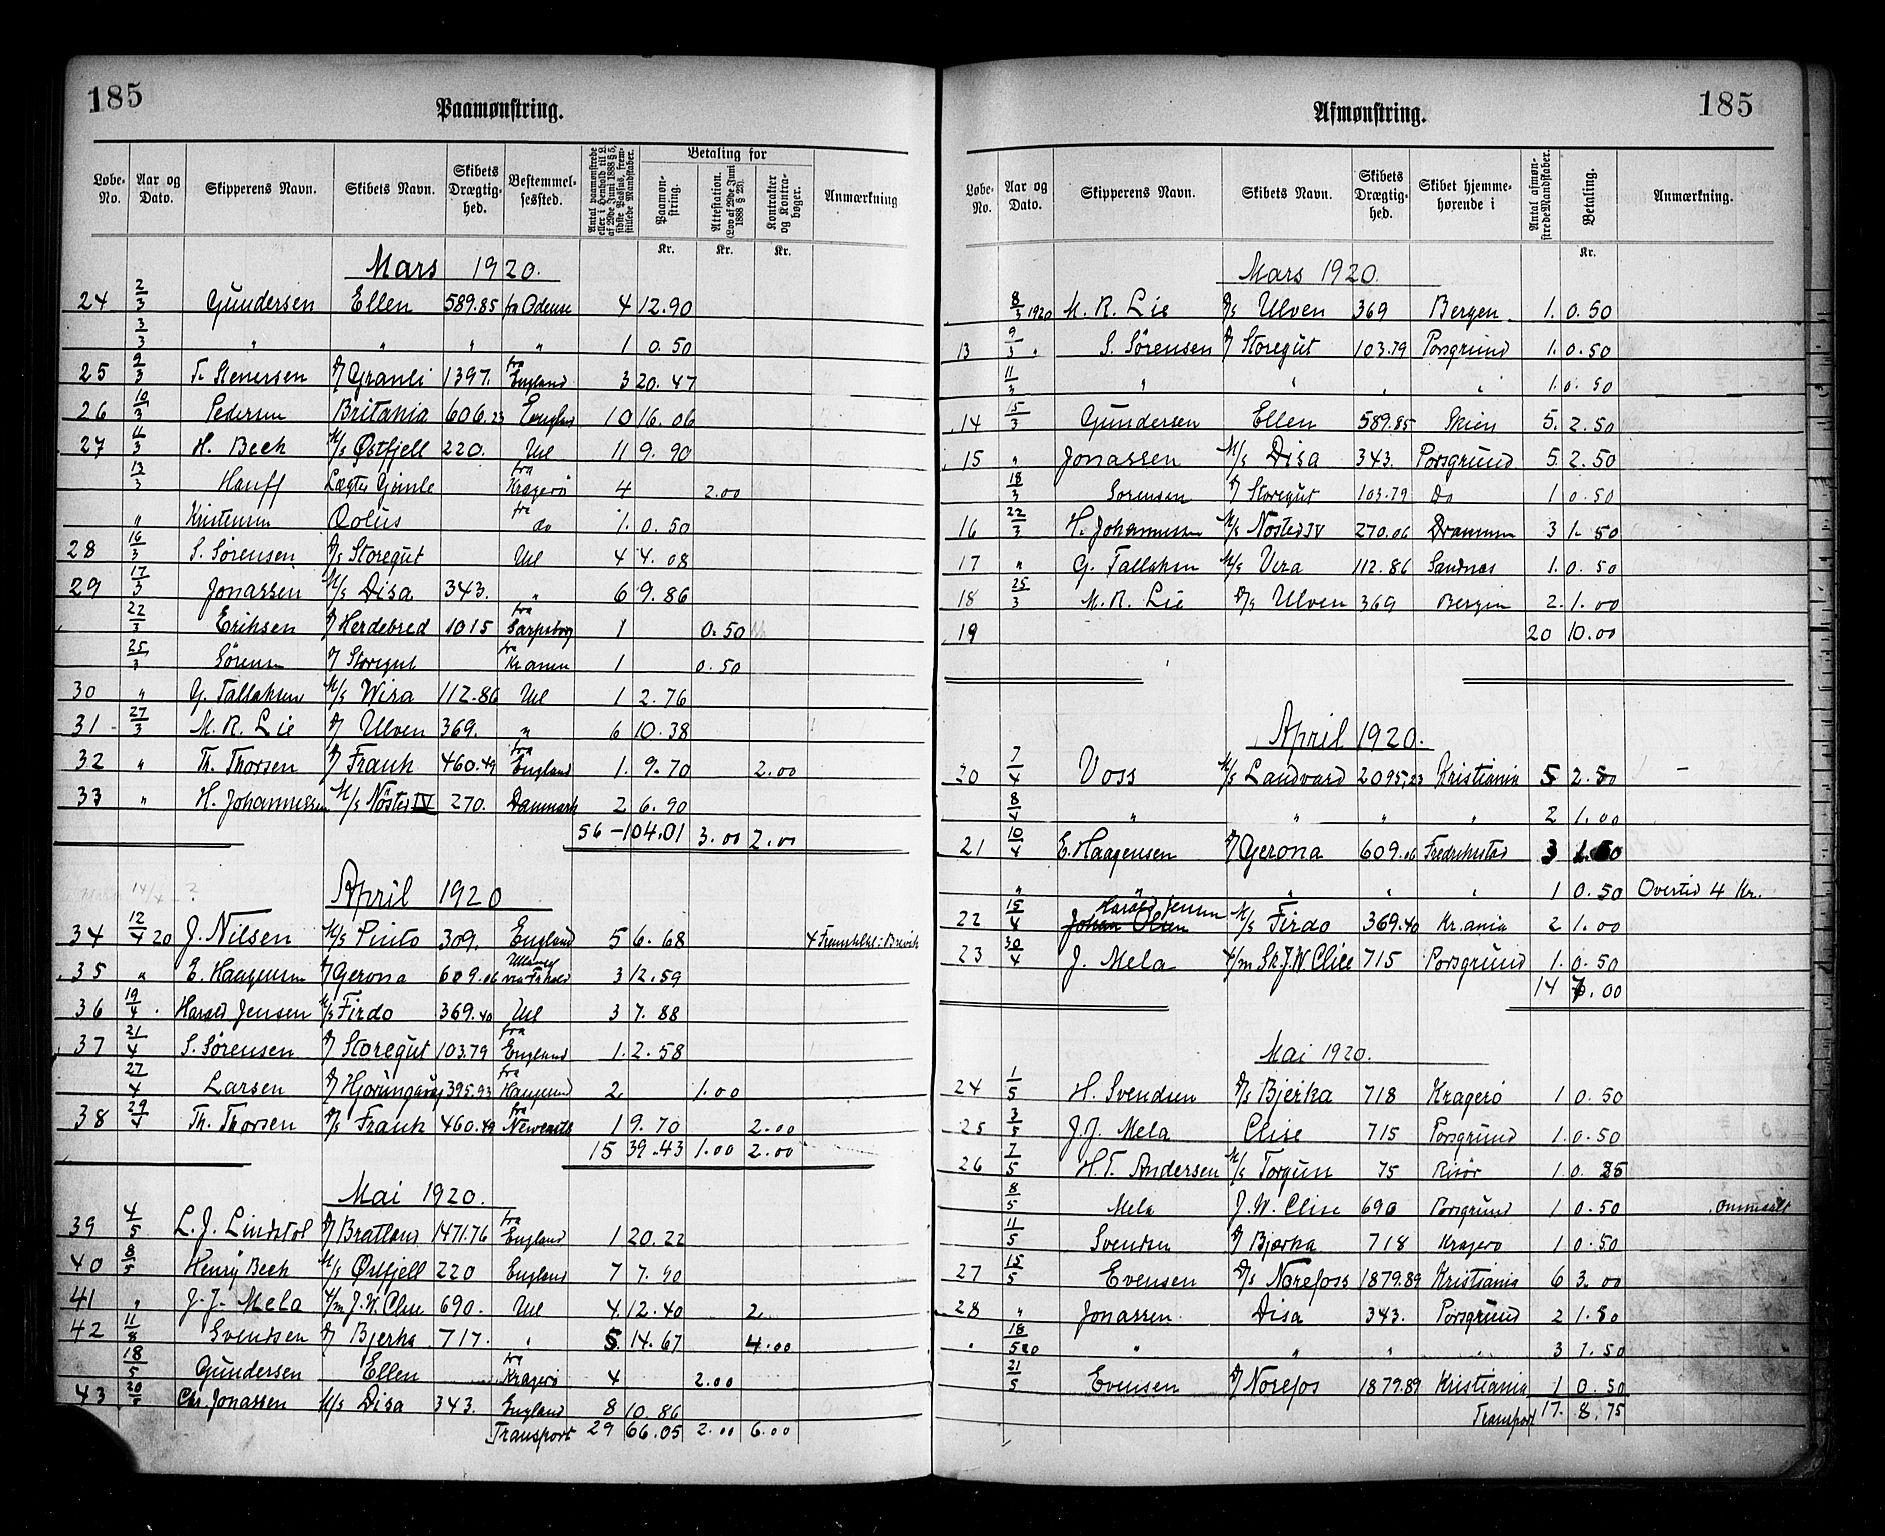 185
Paamønstring.
Løbe-No. Aar og Dato. Skipperens Navn. Skibets Navn. Skibets Drægtighed. Bestemmelsessted. Antal paamønstrede eller i Henhold til L. af 29de Juni 1888 § 5, sidste Passus, fremstillede Mandskaber. Betaling for Paamønstring. Attestation. (Lov af 29de Juni 1888 § 23). Kontrakter og Kontrabøger. Anmærkning
Kr. Kr. Kr.
Mars 1920.
24 2/3 Gundersen Ellen 589.85 fra Odense 4 12.90
3/3 " " " " 1 0.50
25 9/3 T. Stenersen D/ Granli 1397. fra England 3 20.47
26 10/3 Pedersen Britania 606.23 England 10 16.06
27 11/3 H. Beck M/s Østfjell 220. Uel 11 9.90
13/3 Hauff Lægter Gamle fra Kragerø 4 2.00
" Kristensen Æolus fra do 1. 0.50
28 16/3 S. Sørensen D/s Storegut Uel 4 4.08
29 17/3 Jonassen M/s Disa 343. " 6 9.86
22/3 Eriksen D/ Herdebred 1015 fra Sarpsborg 1 0.50
25/3 Sørensen D/ Storegut fra Kr.ania 1 0.50
30 " G. Tallaksen M/s Wira 112.86 Uel 1 2.76
31 27/3 M. R. Lie D/ Ulven 369. " 6 10.38
32 " Th. Thorsen D/ Frank 460.49 fra England 1. 9.70 2.00
33 " H. Johannessen M/s Nøsted IV 270. Danmark 2 6.90
56 – 104.01 3.00 2.00
April 1920
34 12/4 20 J. Nilsen M/s Pinto 309. England 5 6.68 4 Fremstillet i Brevik
35 " E. Haagensen D/ Gerona 609.06 3 12.59
36 19/4 Harald Jensen M/s Firdo 369.40 Uel 3 7.88
37 21/4 S. Sørensen D/ Storegut 103.79 fra England 1. 2.58
27/4 Larsen D/ Hjørungavaag 395.93 fra Haugesund 2. 1.00
38 29/4 Th. Thorsen D/s Frank 460.49 fra Newcastle 1 9.70 2.00
15 39.43 1.00 2.00
Mai 1920.
39 4/5 L. J. Lindstøl D/ Bratland 1471.76 fra England 1 20.22
40 8/5 Henry Beck M/s Østfjell 220 England 7 7.90
41 " J. J. Mela 4/m J. W. Clise 690. Uel 4. 12.40 2
42 11/8 Svendsen D/ Bjerka 717. " 5. 14.67 4.00
18/5 Gundersen Ellen fra Kragerø 4 2.00
43 20/5 Chr. Jonassen M/s Disa 343. England 8 10.86
Transport 29 66.05 2.00 6.00
185
Afmønstring.
Løbe-No. Aar og Dato. Skipperens Navn. Skibets Navn. Skibets Drægtighed. Skibet hjemmehørende i Antal afmønstrede Mandskaber. Betaling. Anmærkning.
Kr.
Mars 1920.
8/3 1920 M. R. Lie D/s Ulven 369 Bergen 1. 0.50
13 9/3 " S. Sørensen D/ Storegut 103.79 Porsgrund 1. 0.50
11/3 " " " " 1. 0.50
14 15/3 Gundersen Ellen 589.85 Skien 5. 2.50
15 " Jonassen M/s Disa 343. Porsgrund 5. 2.50
18/3 Sørensen D/ Storegut 103.79 Do 1 0.50
16 22/3 H. Johannessen M/s Nøsted IV 270.06 Drammen 3 1.50
17 " G. Tallaksen M/s Vira 112.86 Sandnes 1. 0.50
18 25/3 M. R. Lie D/s Ulven 369 Bergen 2. 1.00
19 20 10.00
April 1920.
20 7/4 Voss M/s Landvard 2095,23 Kristiania 5 2.50 –
8/4 " " " " 2 1.00
21 10/4 E. Haagensen D/ Gerona 609.06 Fredrikstad 3 1.50
" " " " " 1 0.50 Overtid 4 Kr.
22 15/4 Harald Jensen Johan Olsen M/s Firdo 369.40 Kr.ania 2 1.00
23 30/4 J. Mela 4/m Sk. J. W. Clise 715 Porsgrund 1. 0.50
14 7.00
Mai 1920.
24 1/5 H. Svendsen D/s Bjerka 718 Kragerø 1 0.50
25 3/5 J. J. Mela Clise 715 Porsgrund 1. 0.50
26 7/5 H. T. Andersen M/s Torgun 75 Risør 1 0.25
8/5 Mela J. W. Clise 690 Porsgrund 1 0.50 .ommaalt
11/5 Svendsen D/ Bjerka 718 Kragerø 1 0.50
27 15/5 Evensen D/s Norefoss 1879.89 Kristiania 6 3.00
28 " Jonassen Disa 343. Porsgrund 2 1.00
" 18/5 20 " " " " 3 1.50
21/5 Evensen D/ Norefos 1879.89 Kristiania 1 0.50
Transport 17. 8.75